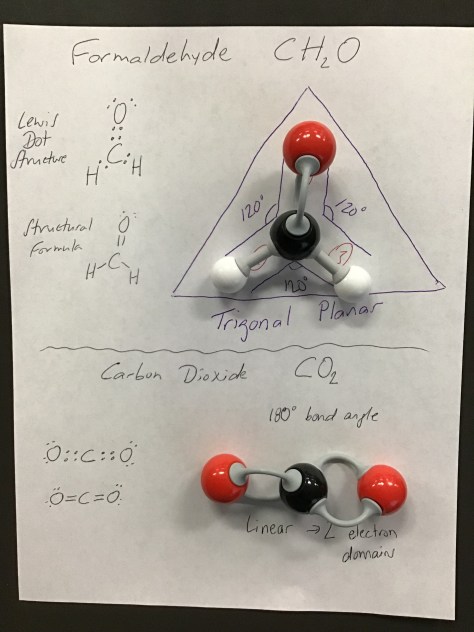 Formaldehyde CH₂O
Lewis
Dot
Structure
:O:
::
H:C:H
Structural
Formula
:O:
||
H-C-H
120° 120°
120°
3
Trigonal Planar
Carbon Dioxide CO₂
180° bond angle
:O::C::O:
:O=C=O:
Linear → 2 electron
domains